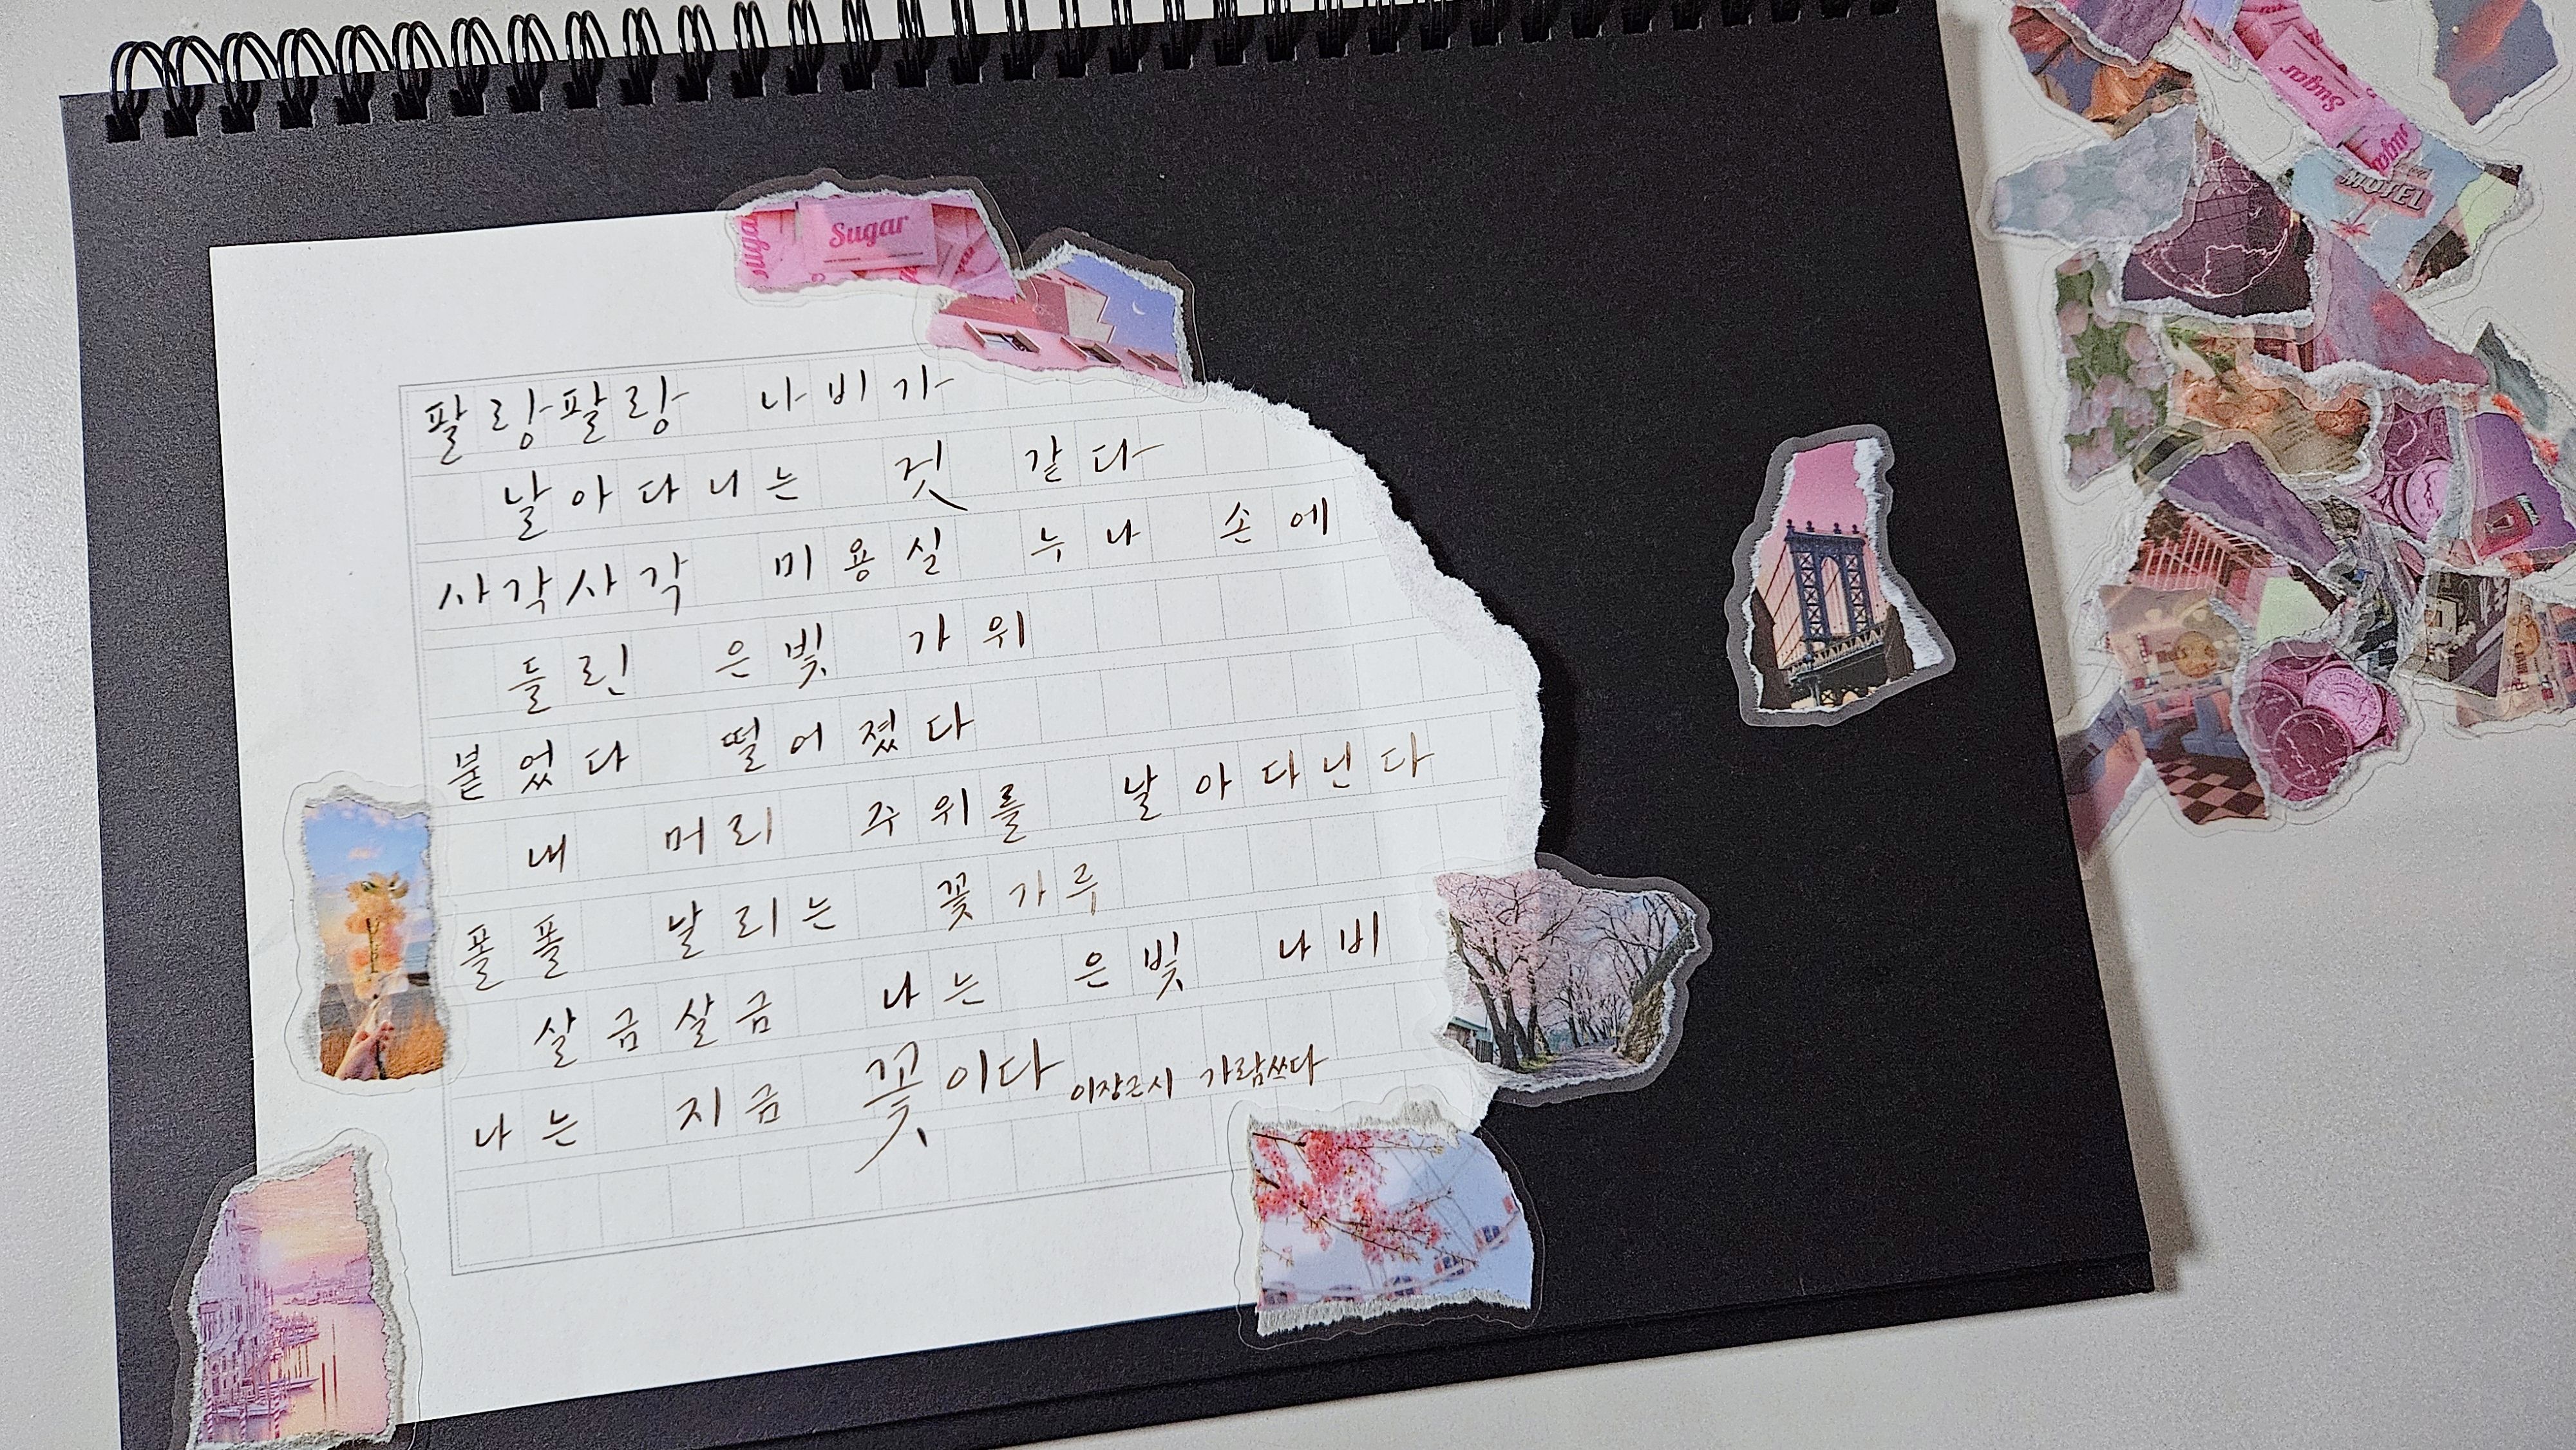 Sugar
팔랑팔랑 나비가
날아다니는 것 같다
사각사각 미용실 누나 손에
들린 은빛 가위
붙었다 떨어졌다
내 머리 주위를 날아다닌다
폴폴 날리는 꽃가루
살금살금 나는 은빛 나비
나는 지금 꽃이다 이장근시 가람쓰다
Sugar
MOTEL